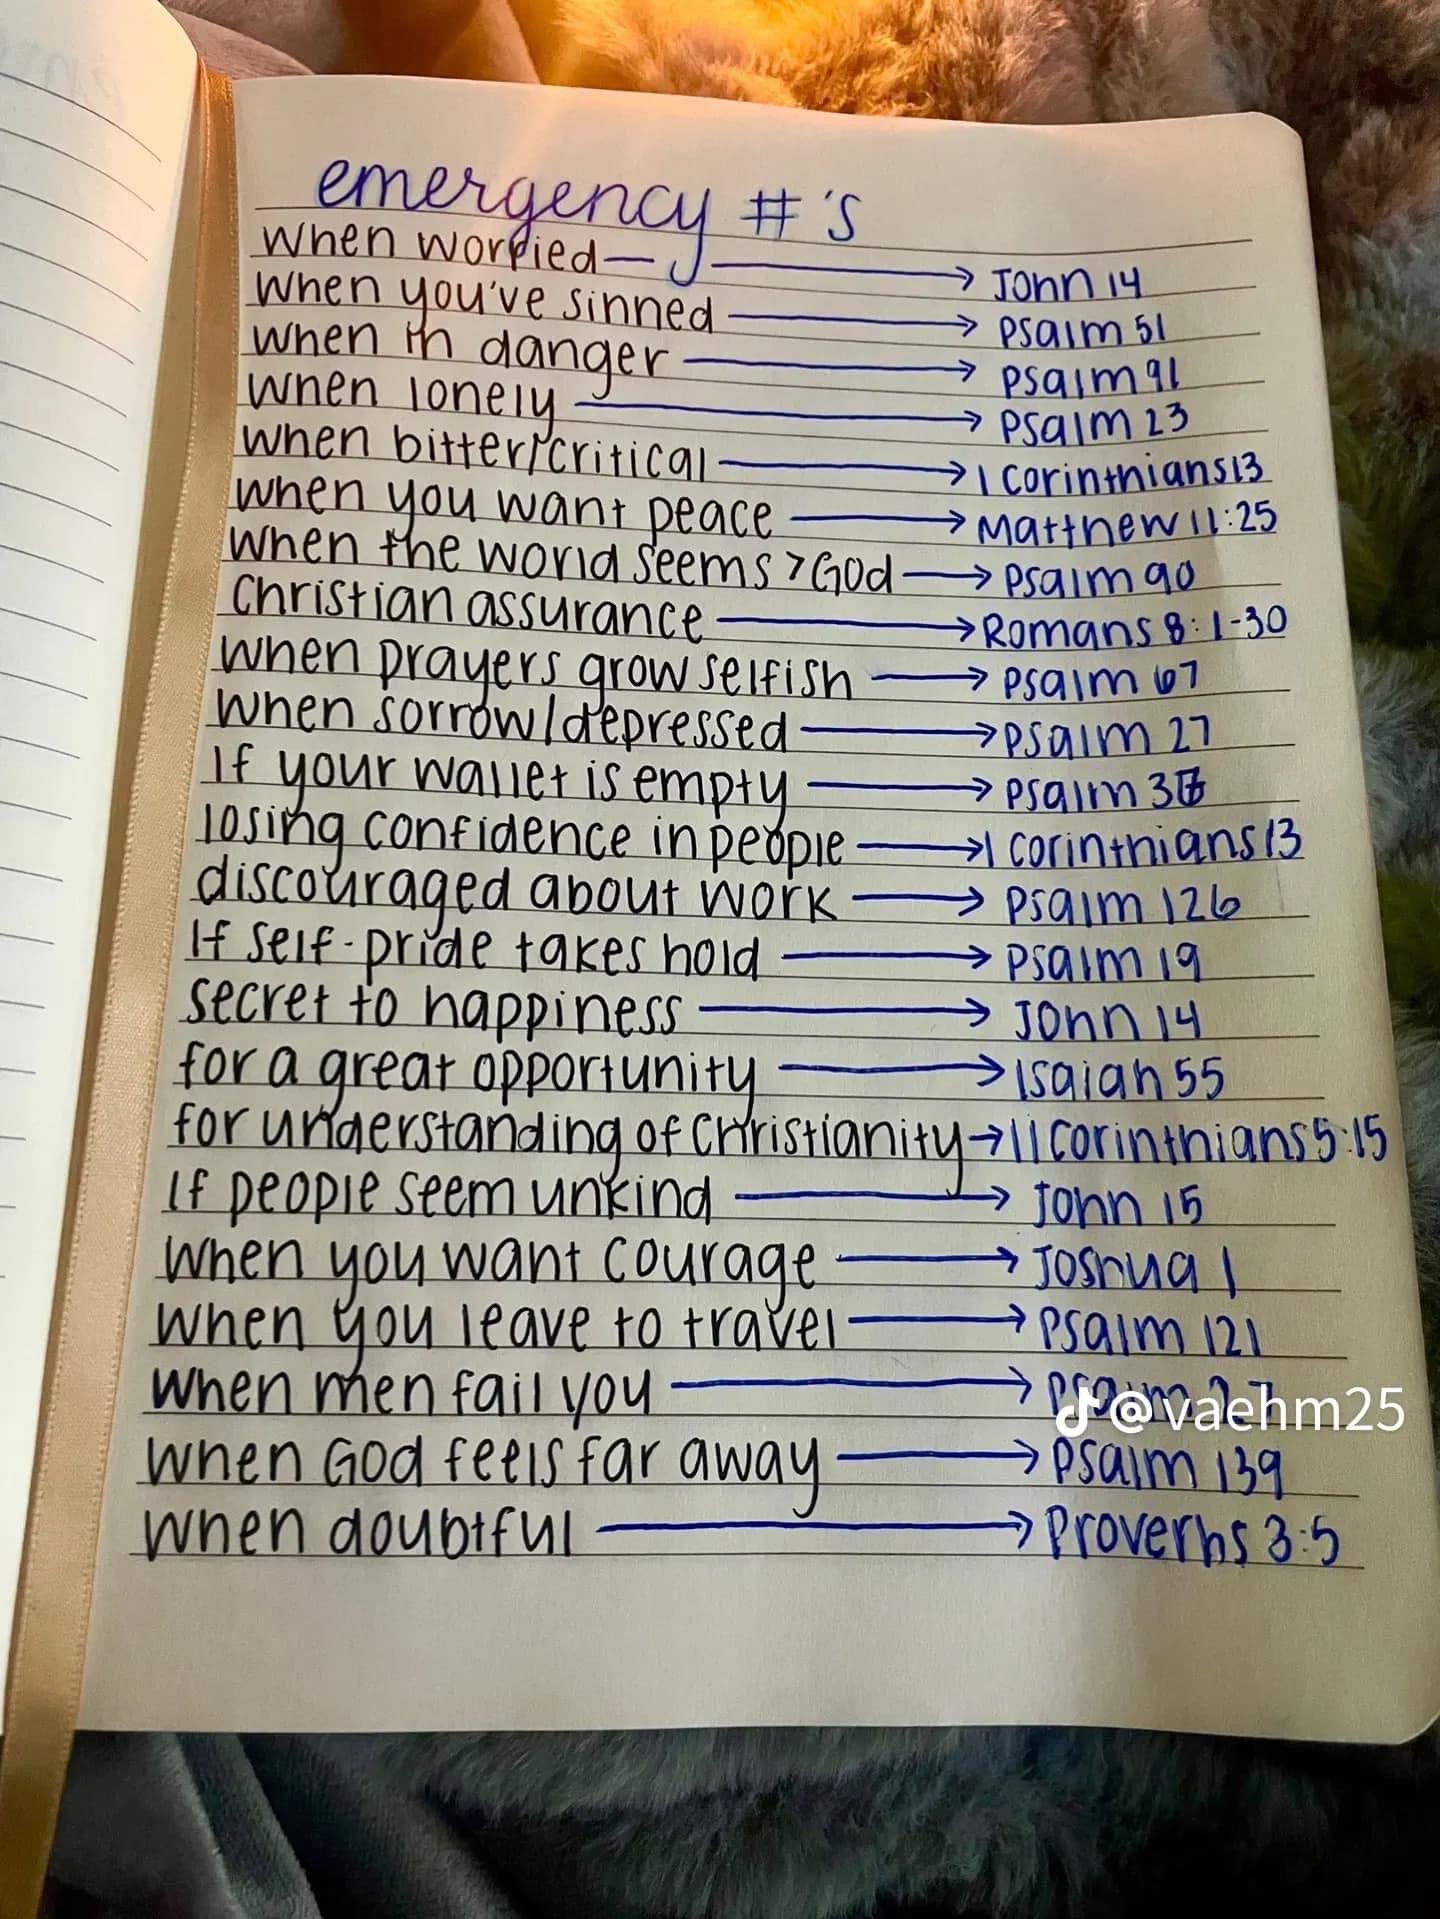 emergency #'s
when worried → John 14
when you've sinned → Psalm 51
when in danger → Psalm 91
when lonely → Psalm 23
when bitter/critical → 1 Corinthians 13
when you want peace → Matthew 11:25
when the world seems > God → Psalm 90
Christian assurance → Romans 8:1-30
when prayers grow selfish → Psalm 67
when sorrow/depressed → Psalm 27
If your wallet is empty → Psalm 3
losing confidence in people → 1 Corinthians 13
discouraged about work → Psalm 126
If self-pride takes hold → Psalm 19
secret to happiness → John 14
for a great opportunity → Isaiah 55
for understanding of Christianity → 11 Corinthians 5:15
If people seem unkind → John 15
when you want courage → Joshua 1
when you leave to travel → Psalm 121
when men fail you → Psalm 27
@vaehm25
when God feels far away → Psalm 139
when doubtful → Proverbs 3:5